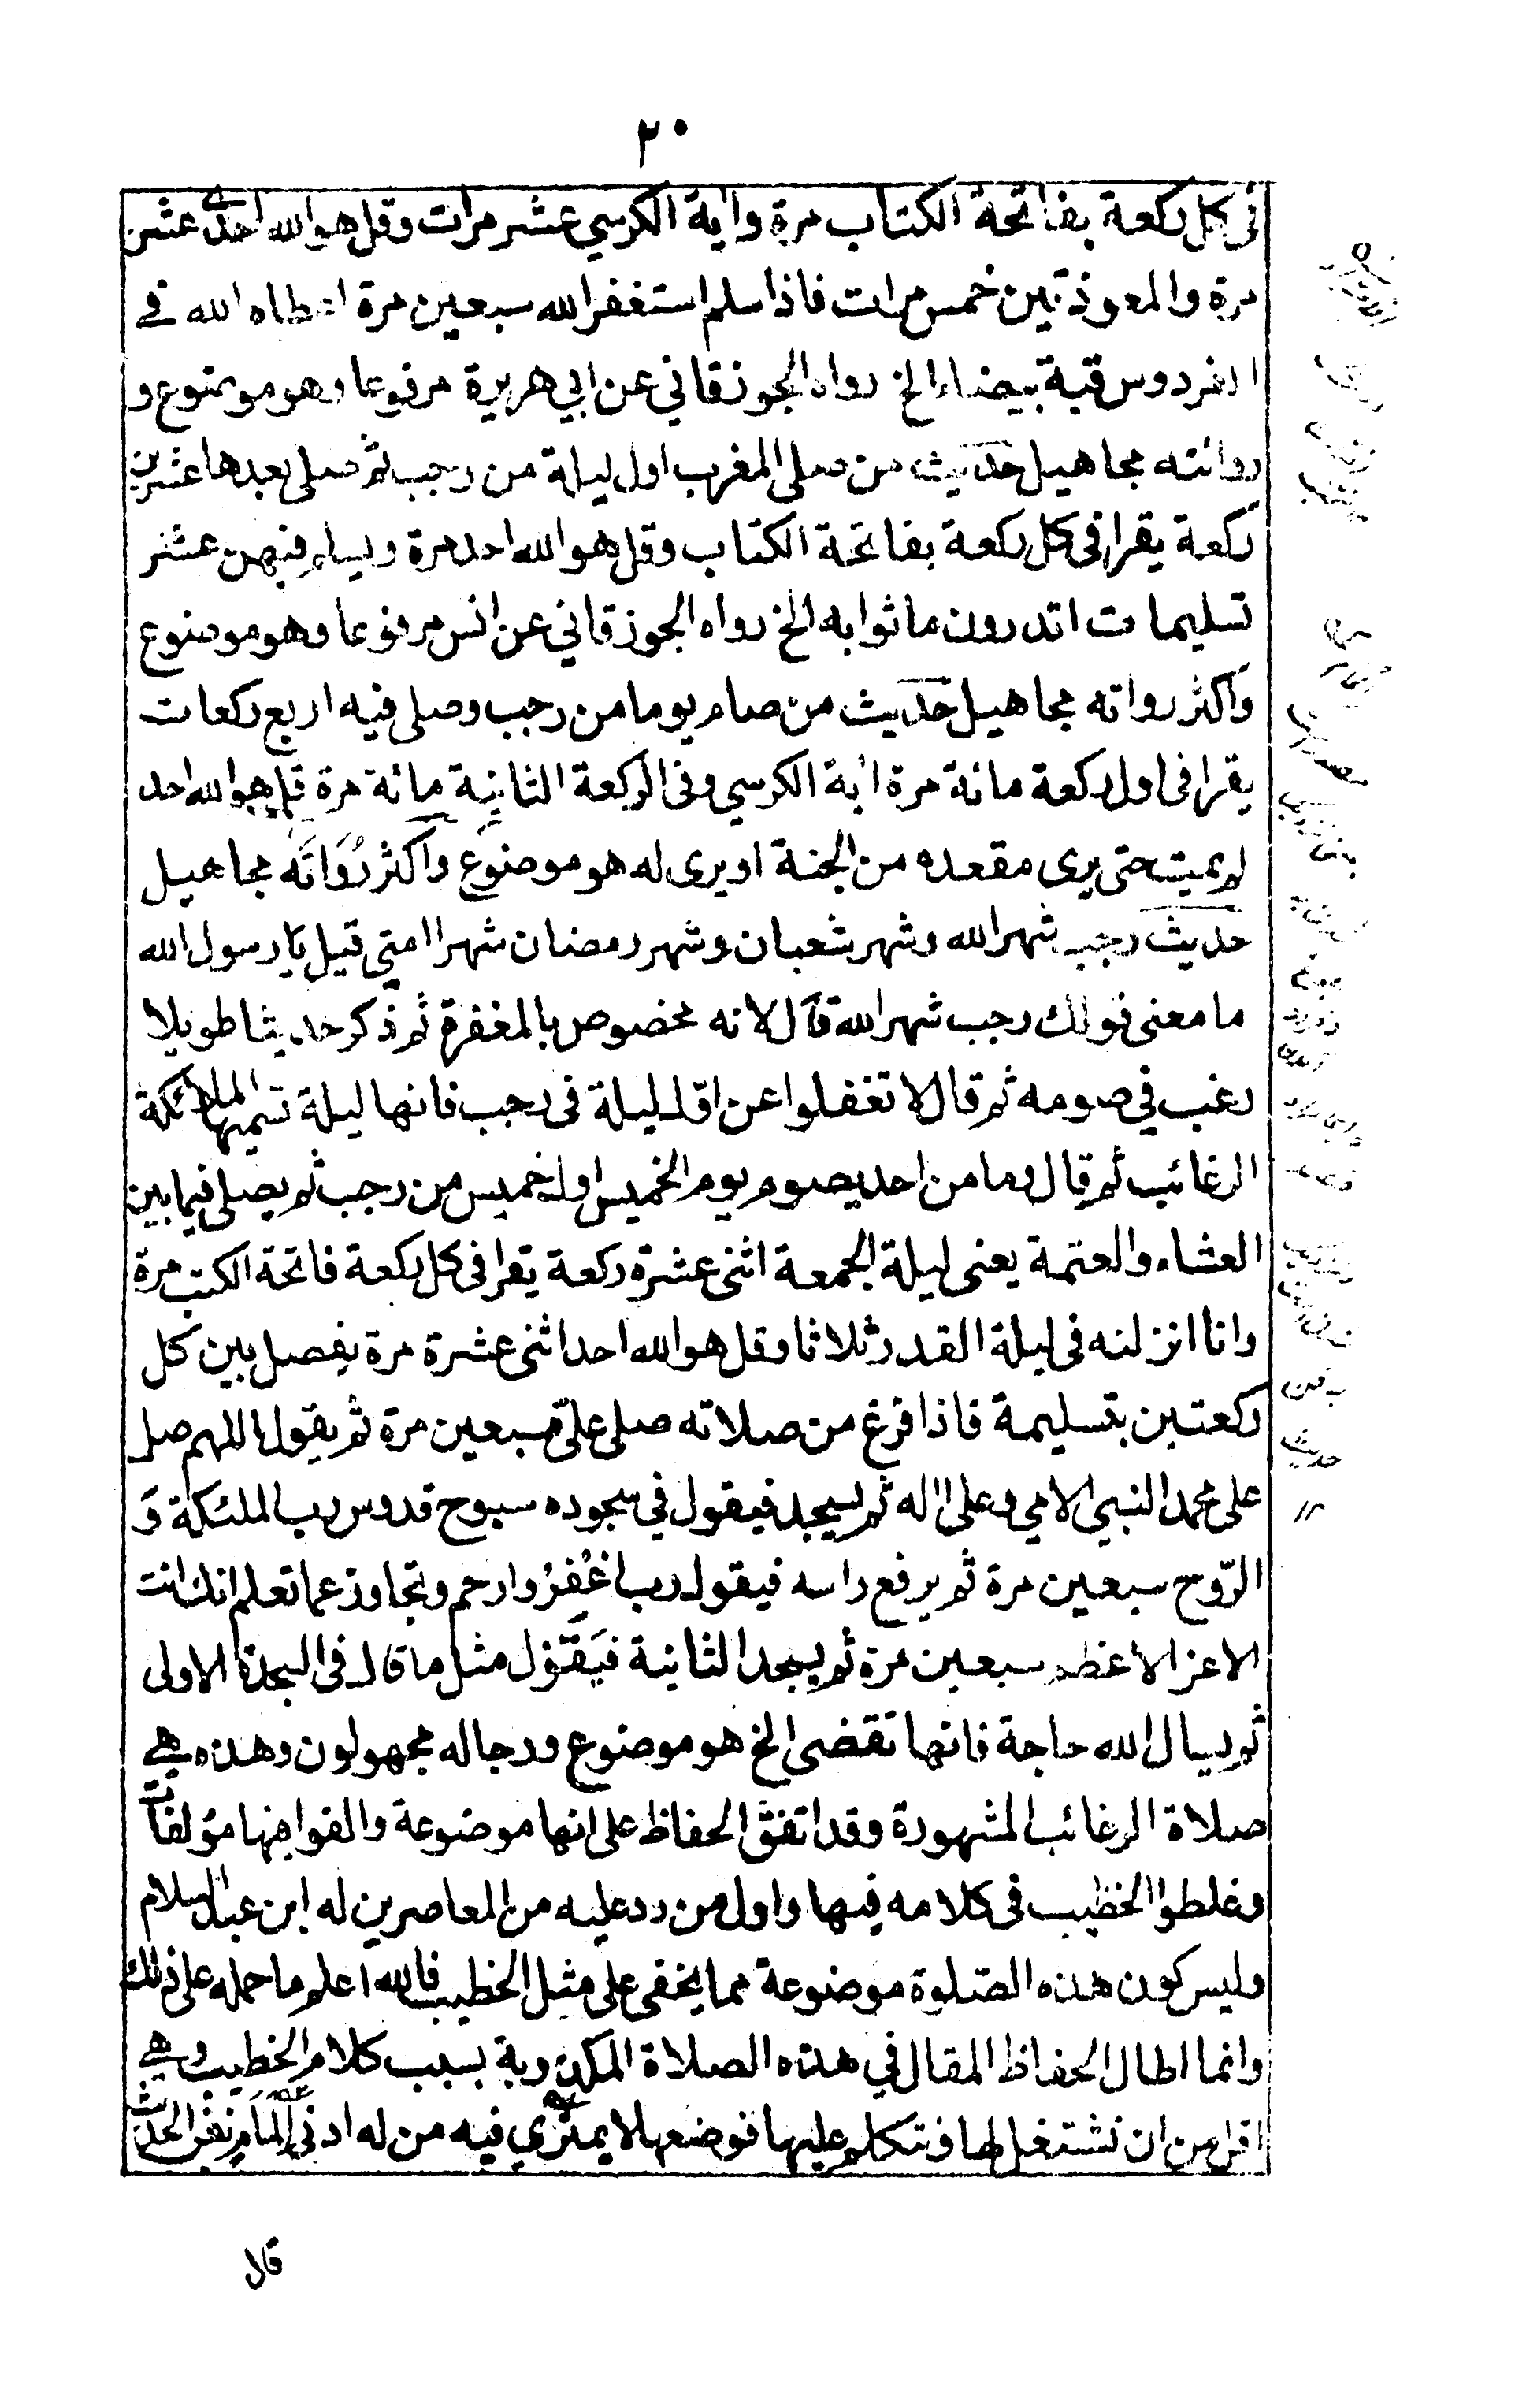 ٢٠
في كل ركعة بفاتحة الكتاب مرة واية الكرسي عشر مرات وقل هو الله احد احدى عشر
مرة والمعوذتين خمس مرات فاذا سلم استغفر الله سبعين مرة اعطاه الله في
الفردوس قبة بيضاء الخ رواه الجوزقاني عن ابي هريرة مرفوعا وهو موضوع و
رواته مجاهيل حديث من صلى المغرب اول ليلة من رجب ثم صلى بعدها عشرين
ركعة يقرا في كل ركعة بفاتحة الكتاب وقل هو الله احد مرة ويسلم فيهن عشر
تسليمات اتدرون ما ثوابه الخ رواه الجوزقاني عن انس مرفوعا وهو موضوع
واكثر رواته مجاهيل حديث من صام يوما من رجب وصلى فيه اربع ركعات
يقرا في اول ركعة مائة مرة اية الكرسي وفى الركعة الثانية مائة مرة قل هو الله احد
لم يمت حتى يرى مقعده من الجنة او يرى له هو موضوع واكثر رُوَاتَه مجاهيل
حديث رجب شهر الله وشهر شعبان وشهر رمضان شهرا امتي قيل يا رسول الله
ما معنى قولك رجب شهر الله قال لانه مخصوص بالمغفرة ثم ذكر حديثا طويلا
رغب في صومه ثم قال لا تغفلوا عن اول ليلة فى رجب فانها ليلة تسميها الملائكة
الرغائب ثم قال وما من احد يصوم يوم الخميس اول خميس من رجب ثم يصلى فيما بين
العشاء والعتمة يعنى ليلة الجمعة اثنى عشرة ركعة يقرا فى كل ركعة فاتحة الكتب مرة
وانا انزلنه فى ليلة القدر ثلاثا وقل هو الله احد اثنى عشرة مرة يفصل بين كل
ركعتين بتسليمة فاذا فرغ من صلاته صلى علىّ سبعين مرة ثم يقول اللهم صل
على محمد النبي الامي وعلى اله ثم يسجد فيقول في سجوده سبوح قدوس رب الملئكة وَ
الرّوح سبعين مرة ثم يرفع راسه فيقول رب اغْفِرْ وارحم وتجاوز عما تعلم انك انت
الاعز الاعظم سبعين مرة ثم يسجد الثانية فيَقُوْل مثل ما قال فى السجدة الاولى
ثم يسال الله حاجة فانها تقضى الخ هو موضوع ورجاله مجهولون وهذه هي
صلاة الرغائب المشهورة وقد اتفق الحفاظ على انها موضوعة والفوا فيها مؤلفات
وغلطوا الخطيب فى كلامه فيها واول من رد عليه من المعاصرين له ابن عبد السلام
وليس كون هذه الصّلوة موضوعة مما يخفى على مثل الخطيب فالله اعلم ما حمله على ذلك
وانما اطال الحفاظ المقال في هذه الصلاة المكذوبة بسبب كلام الخطيب وهي
اقل من ان نشتغل بها ونتكلم عليها فوضعها لا يمتري فيه من له ادنى المام بفن الحديث
قال